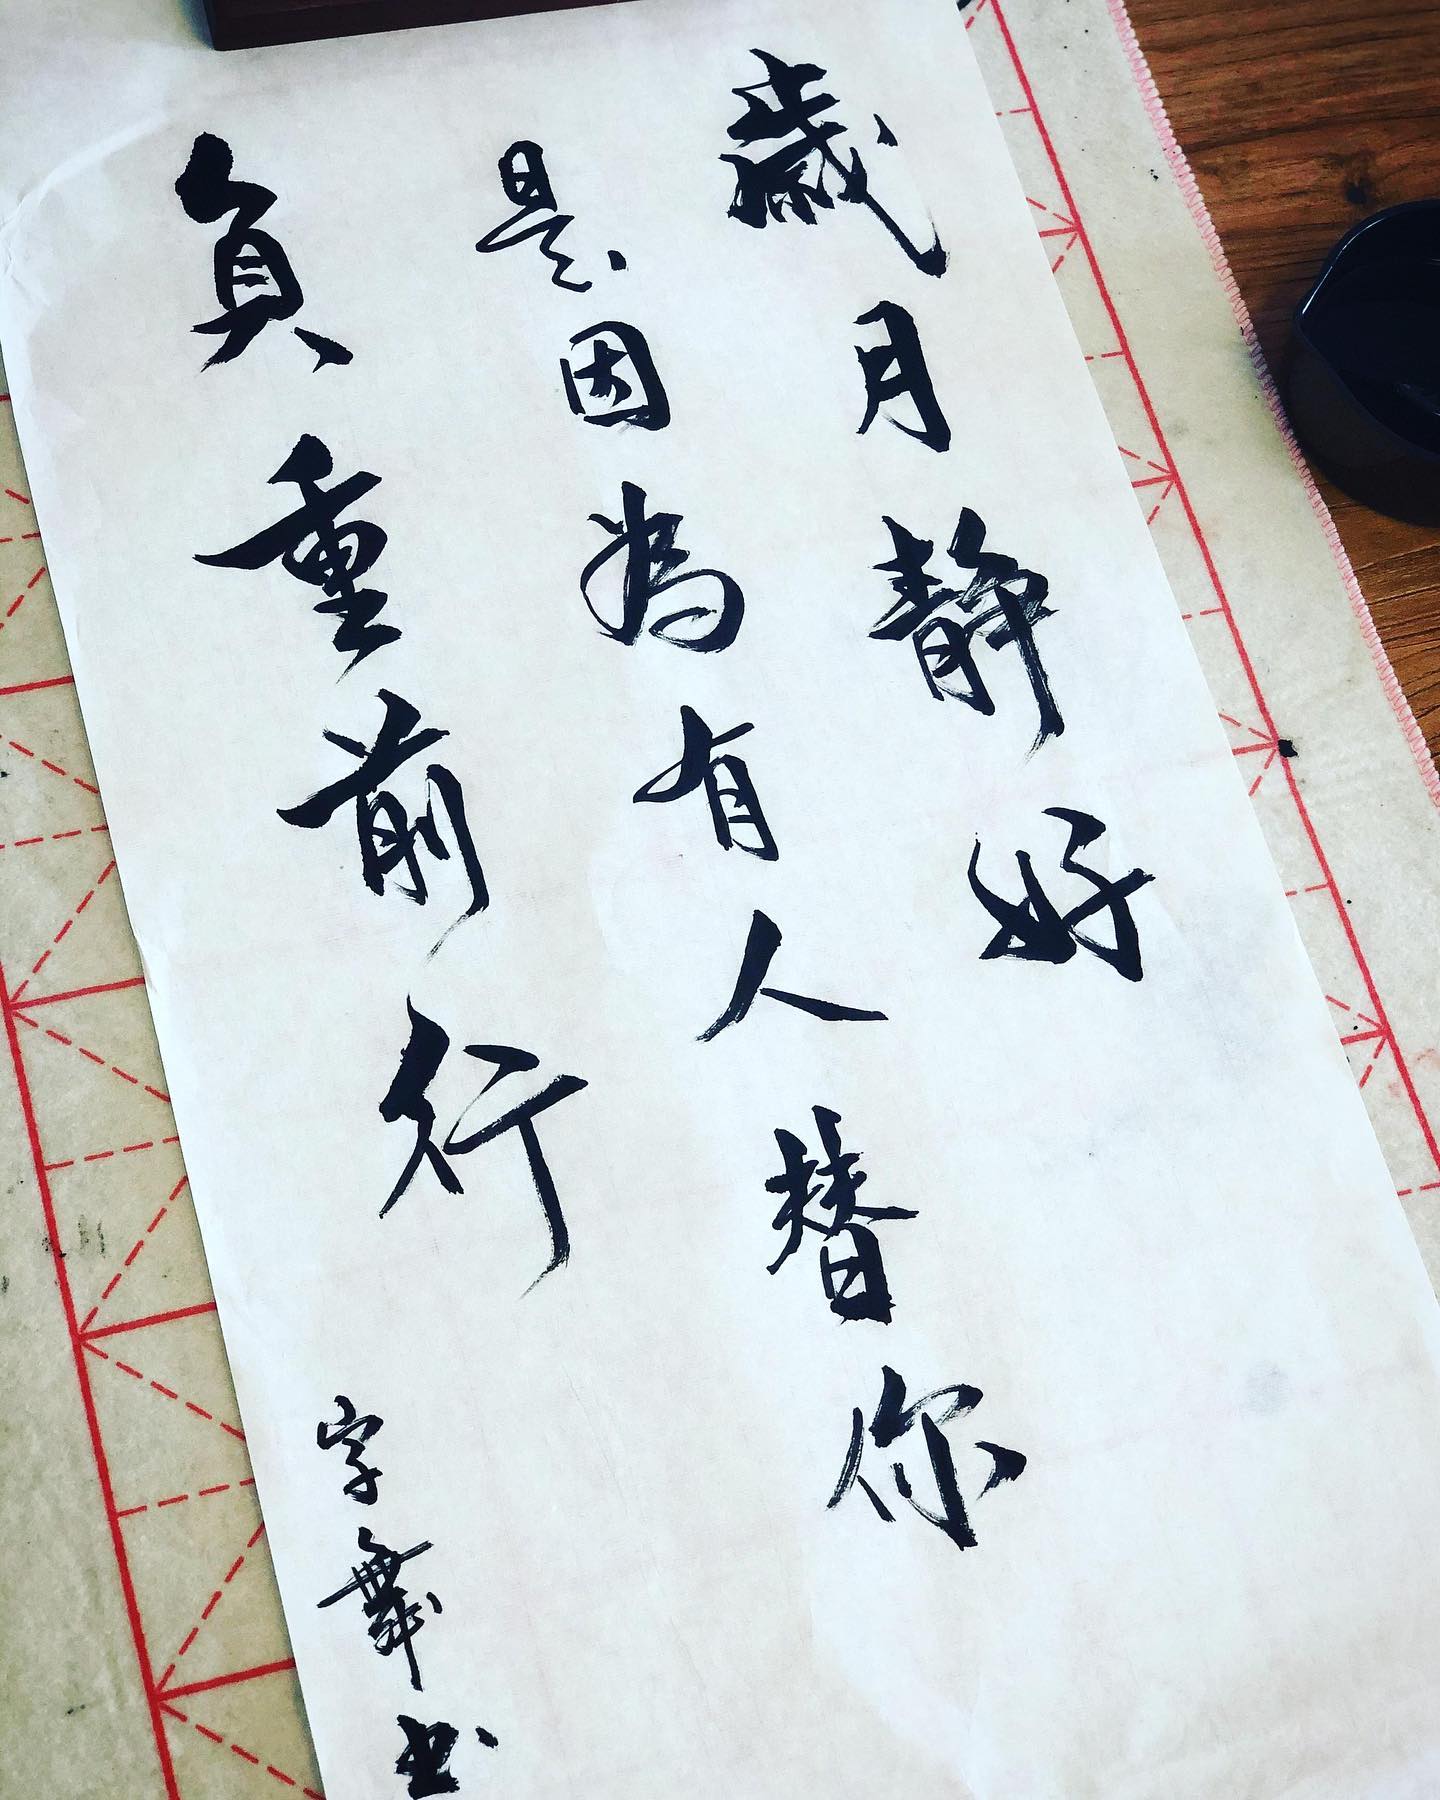 歲月静好
是因为有人替你
負重前行
字舞书